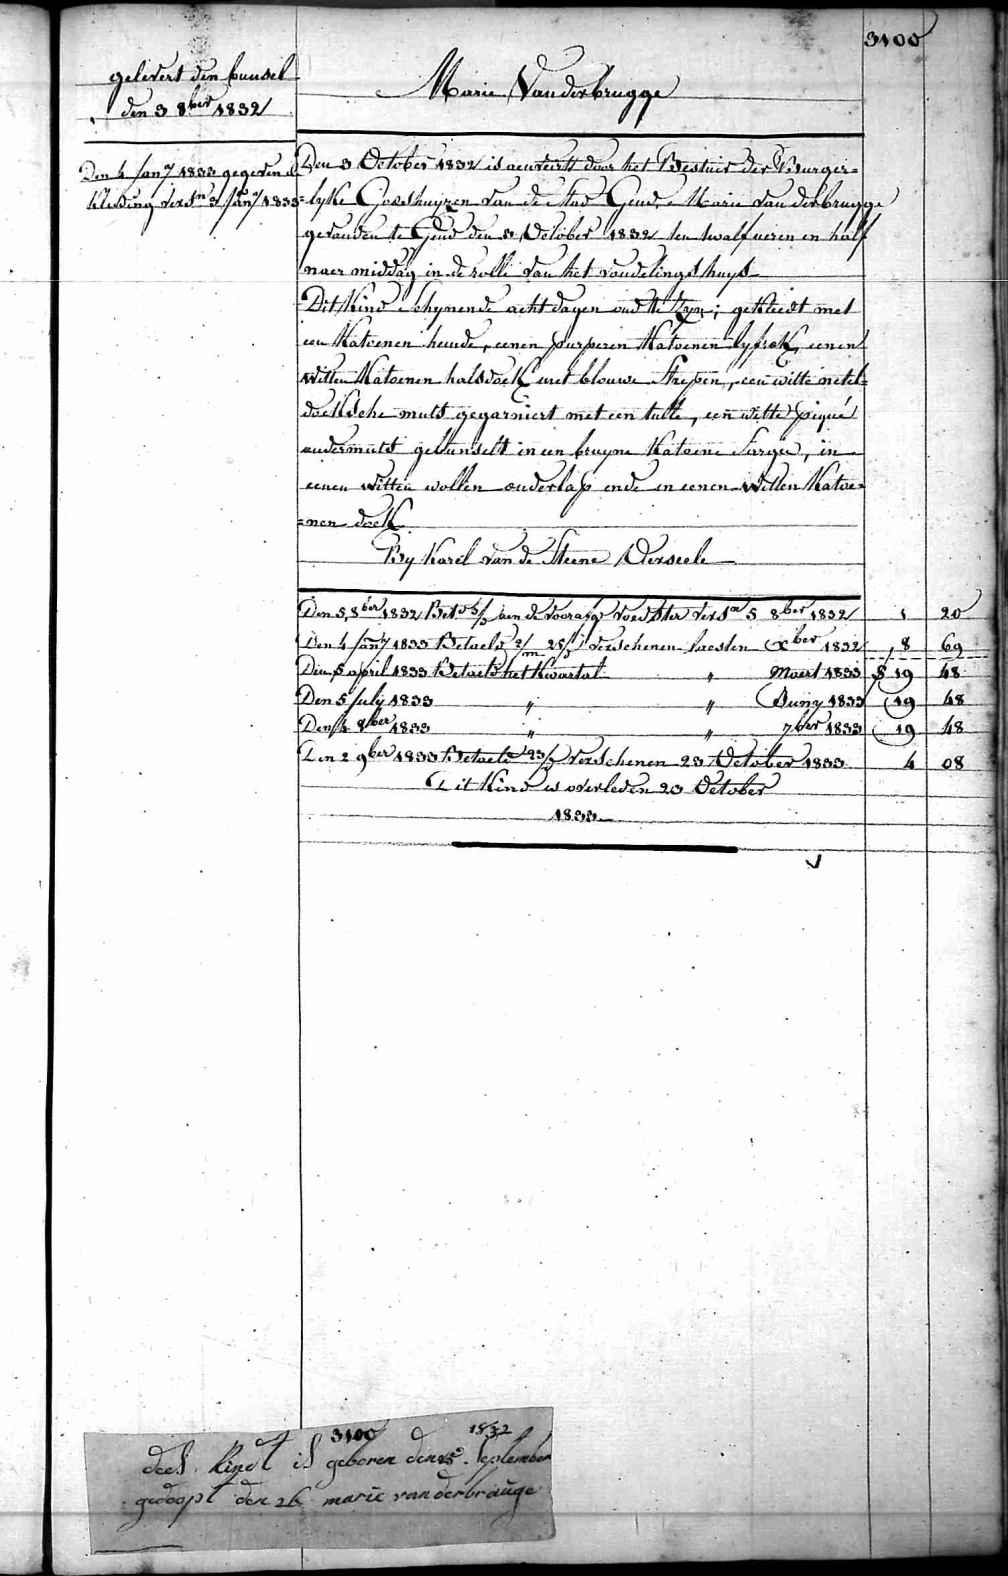 3100
gelevert den bunsel
den 3 8ber 1832
Marie Vanderbrugge
Den 4 Jany 1833 gegeven de
kleeding versn 3 Jany 1833
Den 3 October 1832 is aenveirt door het Bestuir der Burger=
=lyke Godshuyzen van de Stad Gend, Marie vanderbrugge
gevonden te Gend den 3 October 1832 ten twalf ueren en half
naer middag in de rolle van het vondelingshuys
Dit kind schynende acht dagen oud te zyn; gekleedt met
een katoenen hemde, eenen purperen katoenen lyfrok, eenen
witten katoenen halsdoek met blouwe strepen, een witte netel=
doeksche muts gegarniert met een tulle, een witte piqué
ondermuts gebunselt in een bruyne katoene sargie, in
eenen witten wollen onderlap ende in eenen witten katoe=
=nen doek
By Karel van de Steene Verseele
Den 5 8ber 1832 Bet. aen de voorafg voedster versn 5 8ber 1832 1 20
Den 4 Jany 1833 Betaeld 2/m 28/j verschenen laesten Xber 1832 18 69
Den 5 april 1833 Betaeld het kwartal " Maert 1833 19 48
Den 5 July 1833 " " Juny 1833 19 48
Den 4 8ber 1833 " " 7ber 1833 19 48
Den 2 9ber 1833 Betaeld 23/j verschenen 23 October 1833 4 08
Dit kind is overleden 23 October
1833
3100 1832
dees kindt is geboren den 25 september
gedoopt den 26 marie vanderbrauge